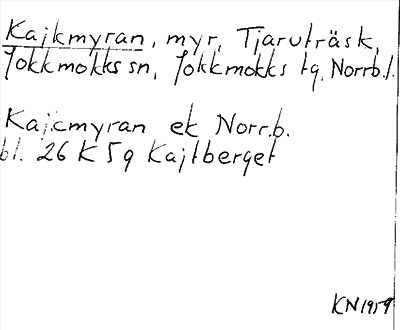 Kajkmyran, myr, Tjaruträsk,
Jokkmokks sn, Jokkmokks tg, Norrb.l.
Kajkmyran ek Norr.b.
bl. 26 K 5g Kajtberget
KN 1959